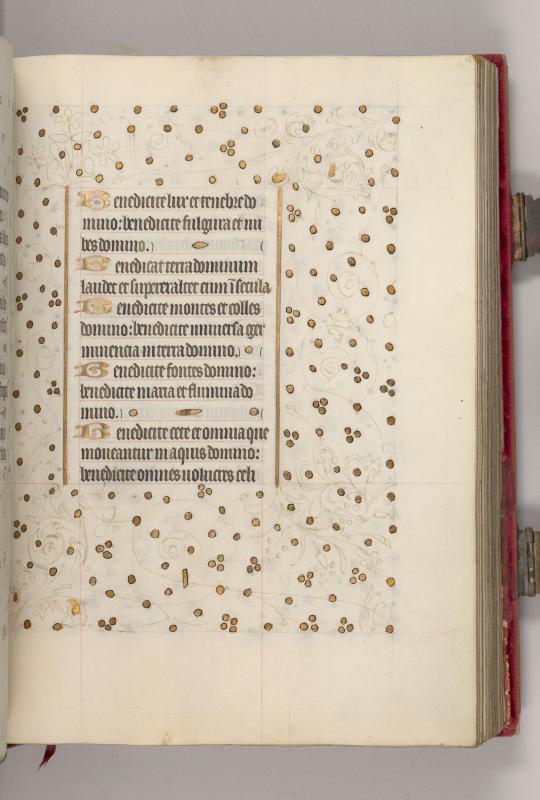 Benedicite lux et tenebre do
mino: benedicite fulgura et nu
bes domino.
Benedicat terra dominum
laudet et superexaltet eum ī secula
Benedicite montes et colles
domino: benedicite universa ger
minencia in terra domino.
Benedicite fontes domino:
benedicite maria et flumina do
mino.
Benedicite cete et omnia que
moveantur in aquis domino:
benedicite omnes volucres celi